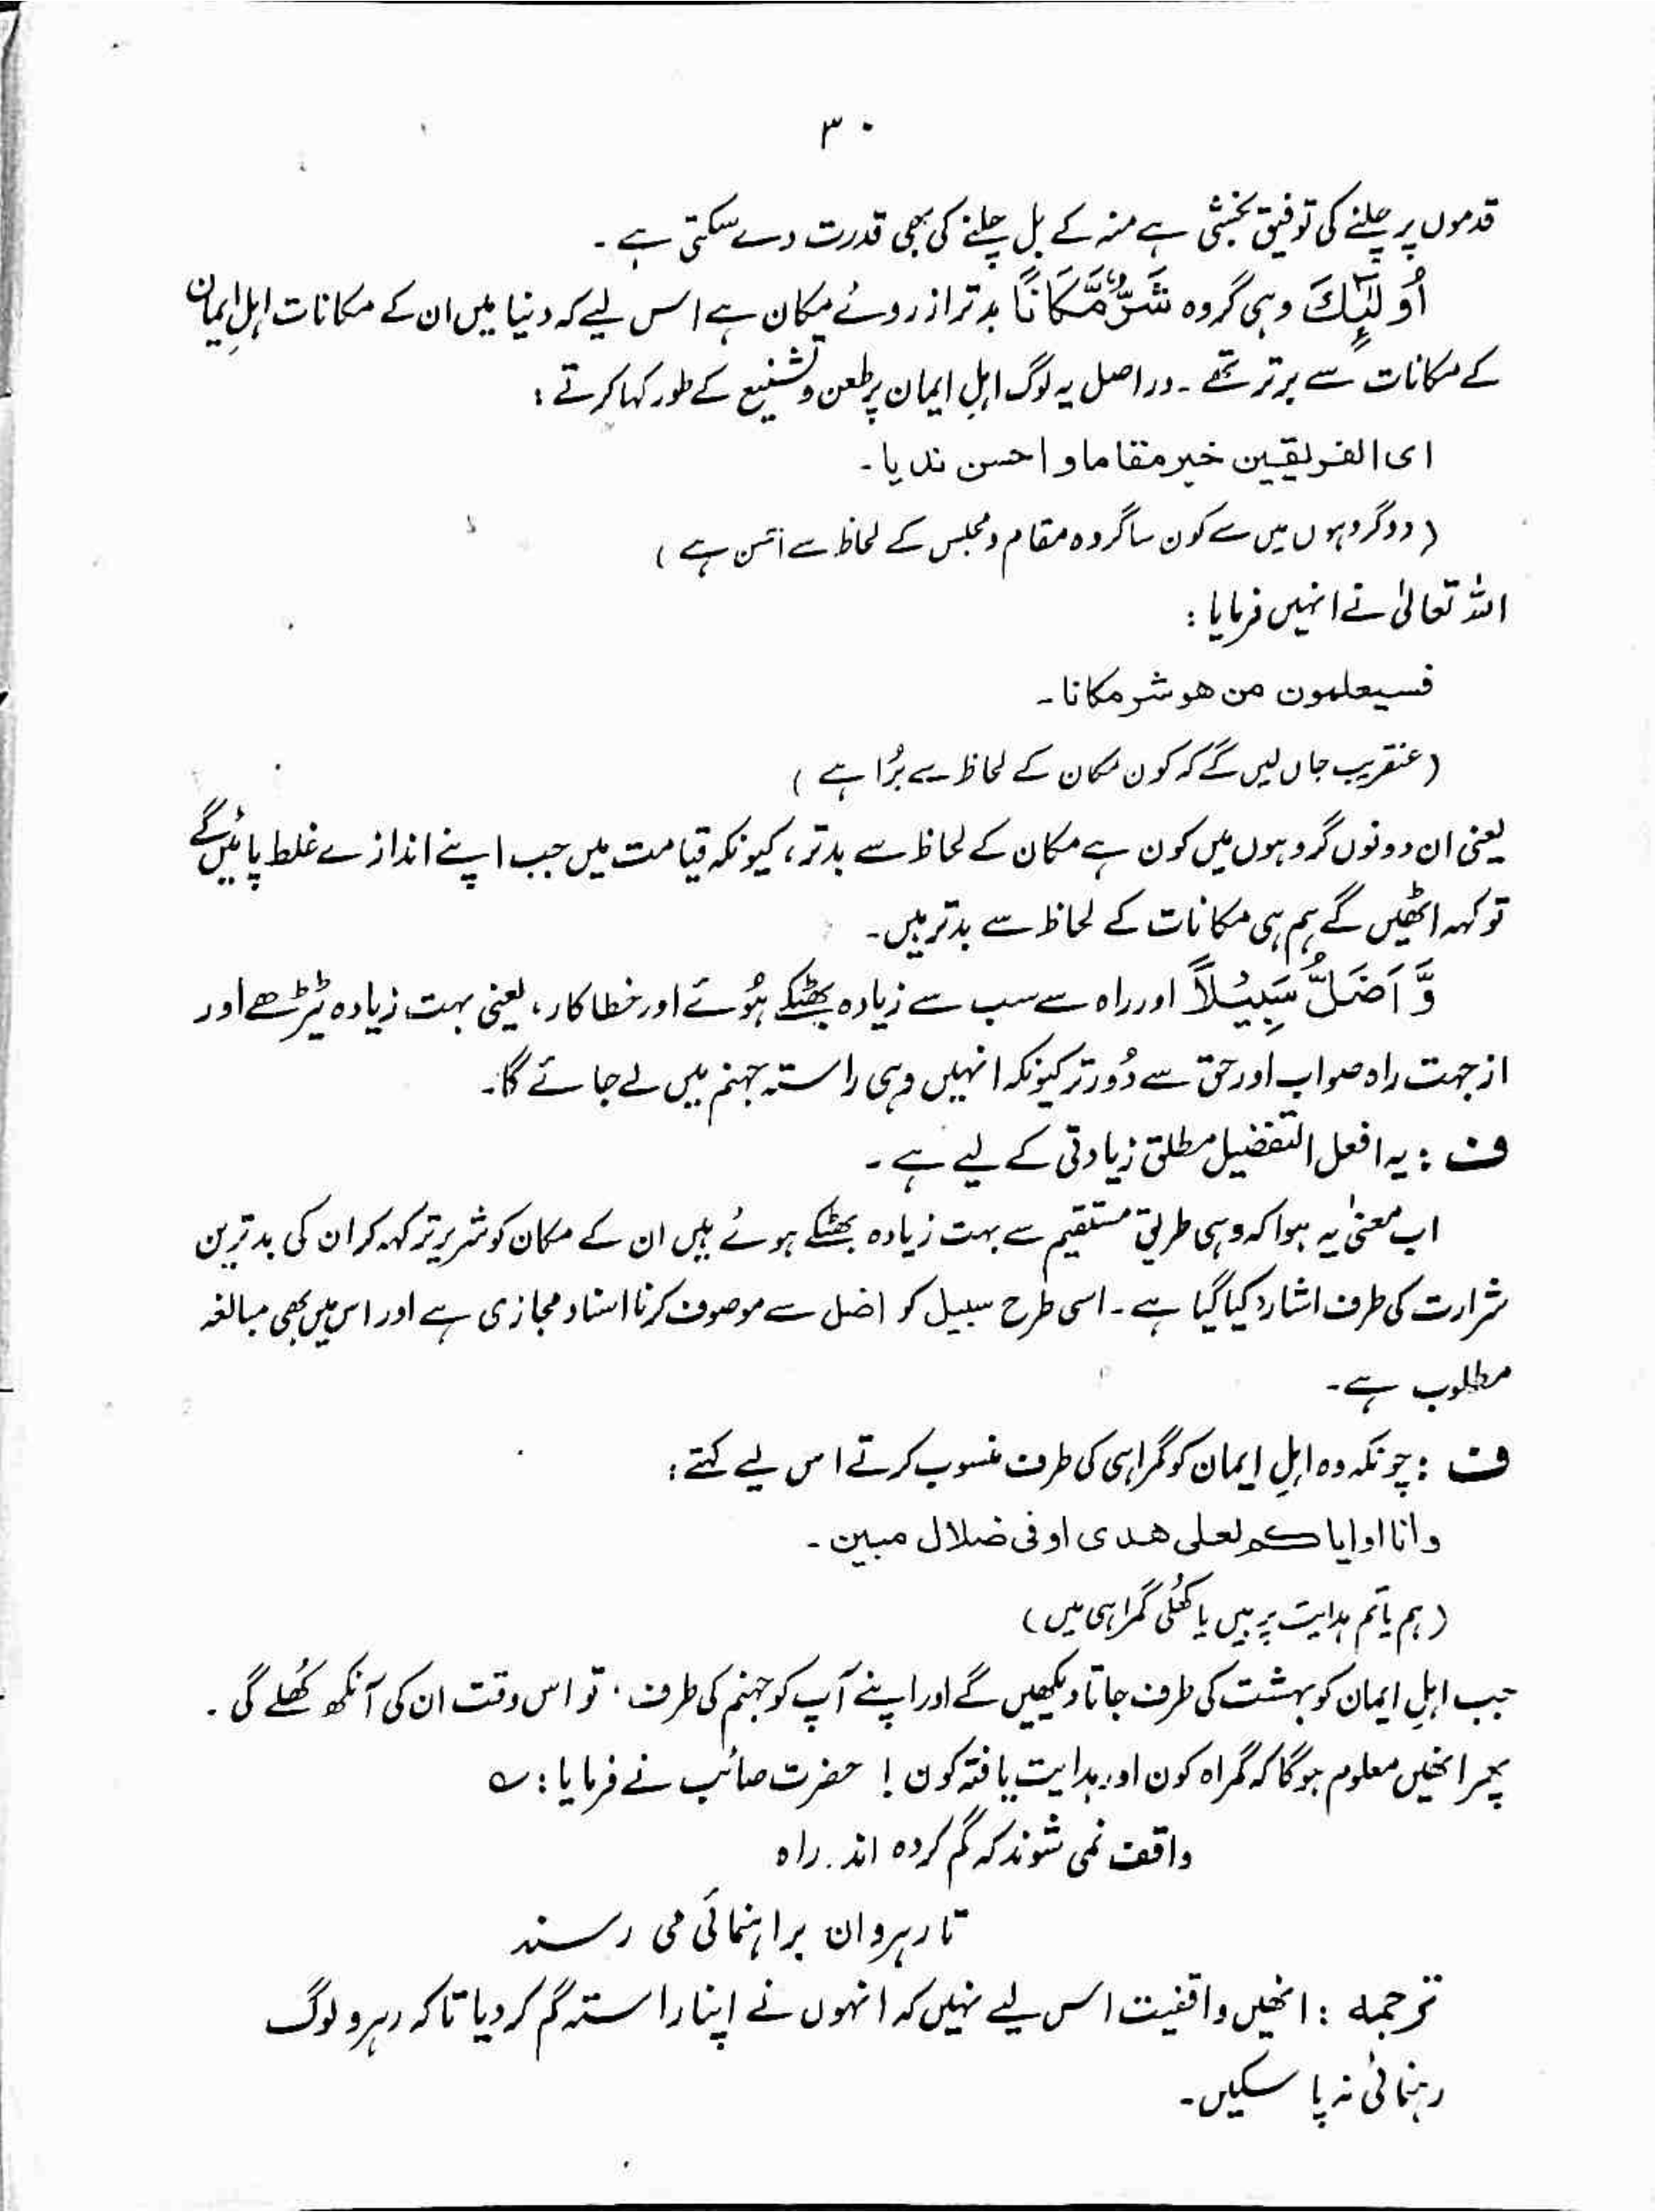 ۳۰
قدموں پر چلنے کی توفیق بخشی ہے منہ کے بل چلنے کی بھی قدرت دے سکتی ہے ۔
اُولٰٓئِكَ وہی گروہ شَرٌّ مَّكَانًا بدتر از روئے مکان ہے اس لیے کہ دنیا میں ان کے مکانات اہلِ ایمان
کے مکانات سے برتر تھے ۔ دراصل یہ لوگ اہلِ ایمان پر طعن و تشنیع کے طور کہا کرتے :
ای الفریقین خیر مقاما و احسن ندیا ۔
( دو گروہوں میں سے کون سا گروہ مقام و مجلس کے لحاظ سے احسن ہے )
اللہ تعالیٰ نے انہیں فرمایا :
فسیعلمون من ھو شر مکانا ۔
( عنقریب جان لیں گے کہ کون مکان کے لحاظ سے بُرا ہے )
یعنی ان دونوں گروہوں میں کون ہے مکان کے لحاظ سے بدتر ، کیونکہ قیامت میں جب اپنے اندازے غلط پائیں گے
تو کہہ اٹھیں گے ہم ہی مکانات کے لحاظ سے بدتر ہیں ۔
وَّ اَضَلُّ سَبِيْلًا اور راہ سے سب سے زیادہ بھٹکے ہُوئے اور خطاکار ، یعنی بہت زیادہ ٹیڑھے اور
از جہت راہ صواب اور حق سے دُور تر کیونکہ انہیں وہی راستہ جہنم میں لے جائے گا ۔
ف : یہ افعل التفضیل مطلق زیادتی کے لیے ہے ۔
اب معنیٰ یہ ہوا کہ وہی طریق مستقیم سے بہت زیادہ بھٹکے ہوئے ہیں ان کے مکان کو شریر تر کہہ کر ان کی بدترین
شرارت کی طرف اشارہ کیا گیا ہے ۔ اسی طرح سبیل کو اضل سے موصوف کرنا اسناد مجازی ہے اور اس میں بھی مبالغہ
مطلوب ہے ۔
ف : چونکہ وہ اہلِ ایمان کو گمراہی کی طرف منسوب کرتے اس لیے کہتے :
وانا او ایاکم لعلی ھدی او فی ضلال مبین ۔
( ہم یا تم ہدایت پر ہیں یا کھُلی گمراہی میں )
جب اہلِ ایمان کو بہشت کی طرف جاتا دیکھیں گے اور اپنے آپ کو جہنم کی طرف ، تو اس وقت ان کی آنکھ کھُلے گی ۔
پھر انھیں معلوم ہوگا کہ گمراہ کون اور ہدایت یافتہ کون ! حضرت صائب نے فرمایا : ؎
واقف نمی شوند کہ گم کردہ اند راہ
تا رہروان براہنمائی می رسند
ترجمہ : انھیں واقفیت اس لیے نہیں کہ انہوں نے اپنا راستہ گم کر دیا تاکہ رہرو لوگ
رہنمائی نہ پا سکیں ۔